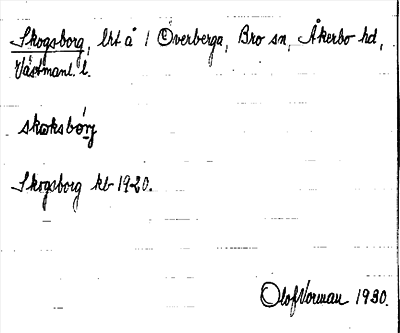 Skogsborg, lht å 1 Överberga, Bro sn, Åkerbo hd,
Västmanl. l.
skoksborj
Skogsborg kb 1920.
Olof Vorman 1930.